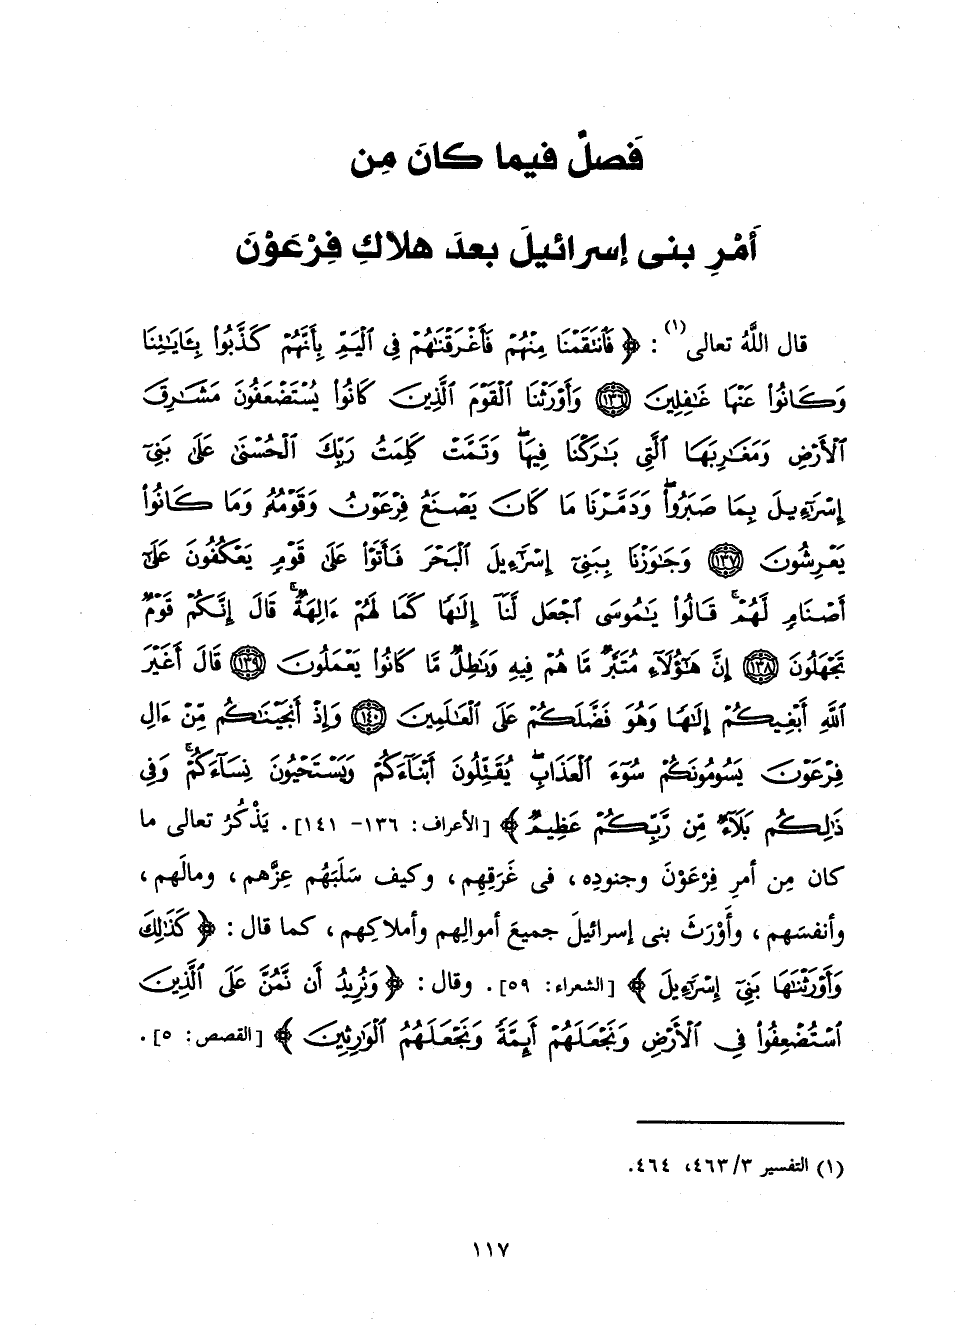 فَصلٌ فيما كانَ مِن
أَمْرِ بنى إسرائيلَ بعدَ هلاكِ فِرْعَوْنَ
قال اللَّهُ تعالى(١) : ﴿ فَٱنتَقَمْنَا مِنْهُمْ فَأَغْرَقْنَٰهُمْ فِى ٱلْيَمِّ بِأَنَّهُمْ كَذَّبُوا۟ بِـَٔايَٰتِنَا
وَكَانُوا۟ عَنْهَا غَٰفِلِينَ ١٣٦ وَأَوْرَثْنَا ٱلْقَوْمَ ٱلَّذِينَ كَانُوا۟ يُسْتَضْعَفُونَ مَشَٰرِقَ
ٱلْأَرْضِ وَمَغَٰرِبَهَا ٱلَّتِى بَٰرَكْنَا فِيهَا ۖ وَتَمَّتْ كَلِمَتُ رَبِّكَ ٱلْحُسْنَىٰ عَلَىٰ بَنِىٓ
إِسْرَٰٓءِيلَ بِمَا صَبَرُوا۟ ۖ وَدَمَّرْنَا مَا كَانَ يَصْنَعُ فِرْعَوْنُ وَقَوْمُهُۥ وَمَا كَانُوا۟
يَعْرِشُونَ ١٣٧ وَجَٰوَزْنَا بِبَنِىٓ إِسْرَٰٓءِيلَ ٱلْبَحْرَ فَأَتَوْا۟ عَلَىٰ قَوْمٍ يَعْكُفُونَ عَلَىٰٓ
أَصْنَامٍ لَّهُمْ ۚ قَالُوا۟ يَٰمُوسَى ٱجْعَل لَّنَآ إِلَٰهًا كَمَا لَهُمْ ءَالِهَةٌ ۚ قَالَ إِنَّكُمْ قَوْمٌ
تَجْهَلُونَ ١٣٨ إِنَّ هَٰٓؤُلَآءِ مُتَبَّرٌ مَّا هُمْ فِيهِ وَبَٰطِلٌ مَّا كَانُوا۟ يَعْمَلُونَ ١٣٩ قَالَ أَغَيْرَ
ٱللَّهِ أَبْغِيكُمْ إِلَٰهًا وَهُوَ فَضَّلَكُمْ عَلَى ٱلْعَٰلَمِينَ ١٤٠ وَإِذْ أَنجَيْنَٰكُم مِّنْ ءَالِ
فِرْعَوْنَ يَسُومُونَكُمْ سُوٓءَ ٱلْعَذَابِ ۖ يُقَتِّلُونَ أَبْنَآءَكُمْ وَيَسْتَحْيُونَ نِسَآءَكُمْ ۚ وَفِى
ذَٰلِكُم بَلَآءٌ مِّن رَّبِّكُمْ عَظِيمٌ ﴾ [الأعراف: ١٣٦- ١٤١]. يَذْكُرُ تعالى ما
كان مِن أمرِ فِرْعَوْنَ وجنودِه، فى غَرَقِهِم، وكيف سَلَبَهُم عِزَّهم، ومالَهم،
وأنفسَهم، وأَوْرَثَ بنى إسرائيلَ جميعَ أموالِهم وأملاكِهم، كما قال : ﴿ كَذَٰلِكَ
وَأَوْرَثْنَٰهَا بَنِىٓ إِسْرَٰٓءِيلَ ﴾ [الشعراء: ٥٩]. وقال : ﴿ وَنُرِيدُ أَن نَّمُنَّ عَلَى ٱلَّذِينَ
ٱسْتُضْعِفُوا۟ فِى ٱلْأَرْضِ وَنَجْعَلَهُمْ أَئِمَّةً وَنَجْعَلَهُمُ ٱلْوَٰرِثِينَ ﴾ [القصص: ٥].
(١) التفسير ٣/ ٤٦٣، ٤٦٤.
١١٧